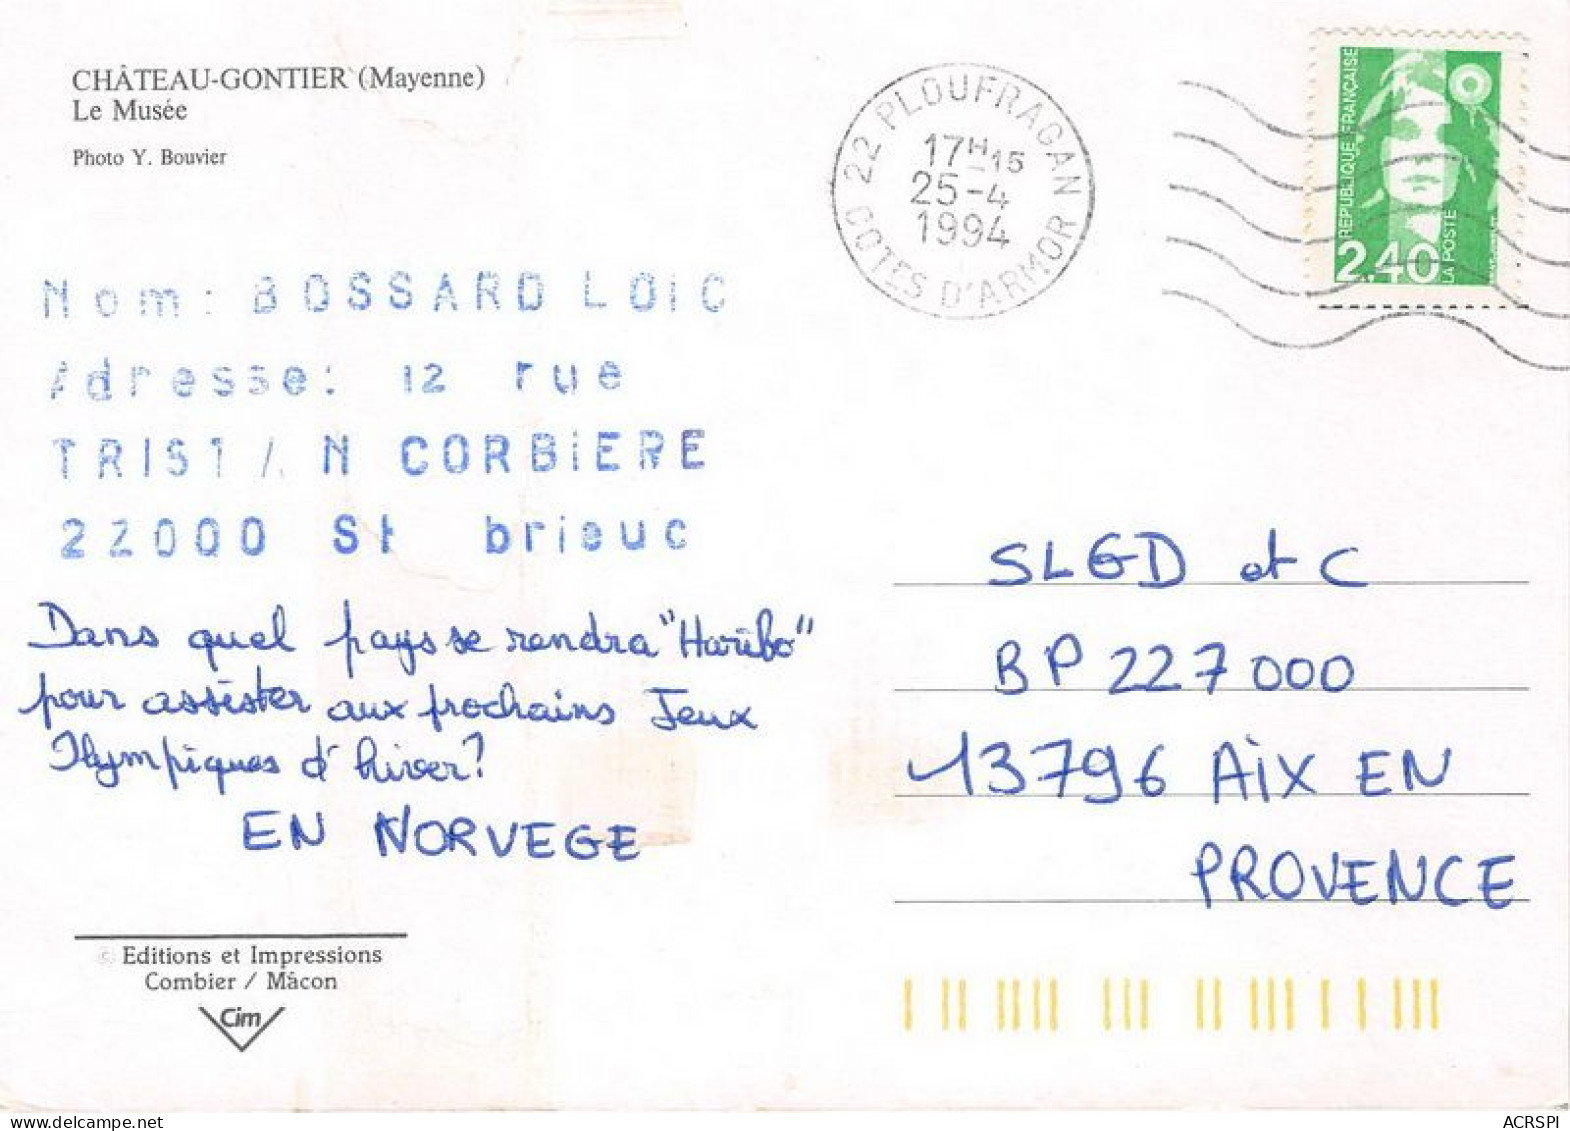 CHÂTEAU-GONTIER (Mayenne)
Le Musée
Photo Y. Bouvier
22 PLOUFRAGAN
17H15
25-4
1994
COTES D'ARMOR
REPUBLIQUE FRANÇAISE
2.40
LA POSTE
Nom: BOSSARD LOIC
Adresse: 12 rue
TRISTAN CORBIERE
22000 St brieuc
Dans quel pays se rendra "Haribo"
pour assister aux prochains Jeux
Olympiques d'hiver?
EN NORVEGE
SLGD et C
BP 227000
13796 AIX EN
PROVENCE
© Editions et Impressions
Combier / Mâcon
Cim
ACRSPI